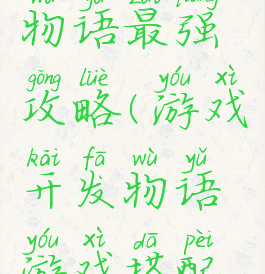 wù yǔ zuì qiáng
物语最强
gōng lüè yóu xì
攻略(游戏
kāi fā wù yǔ
开发物语
yóu xì dā pèi
游戏搭配